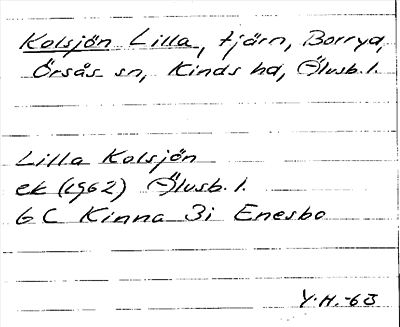 Kolsjön Lilla, tjärn, Borryd,
Örsås sn, Kinds hd, Älvsb. l.
Lilla Kolsjön
ek (1962) Älvsb. l.
6 C Kinna 3i Enesbo
Y.H.-63